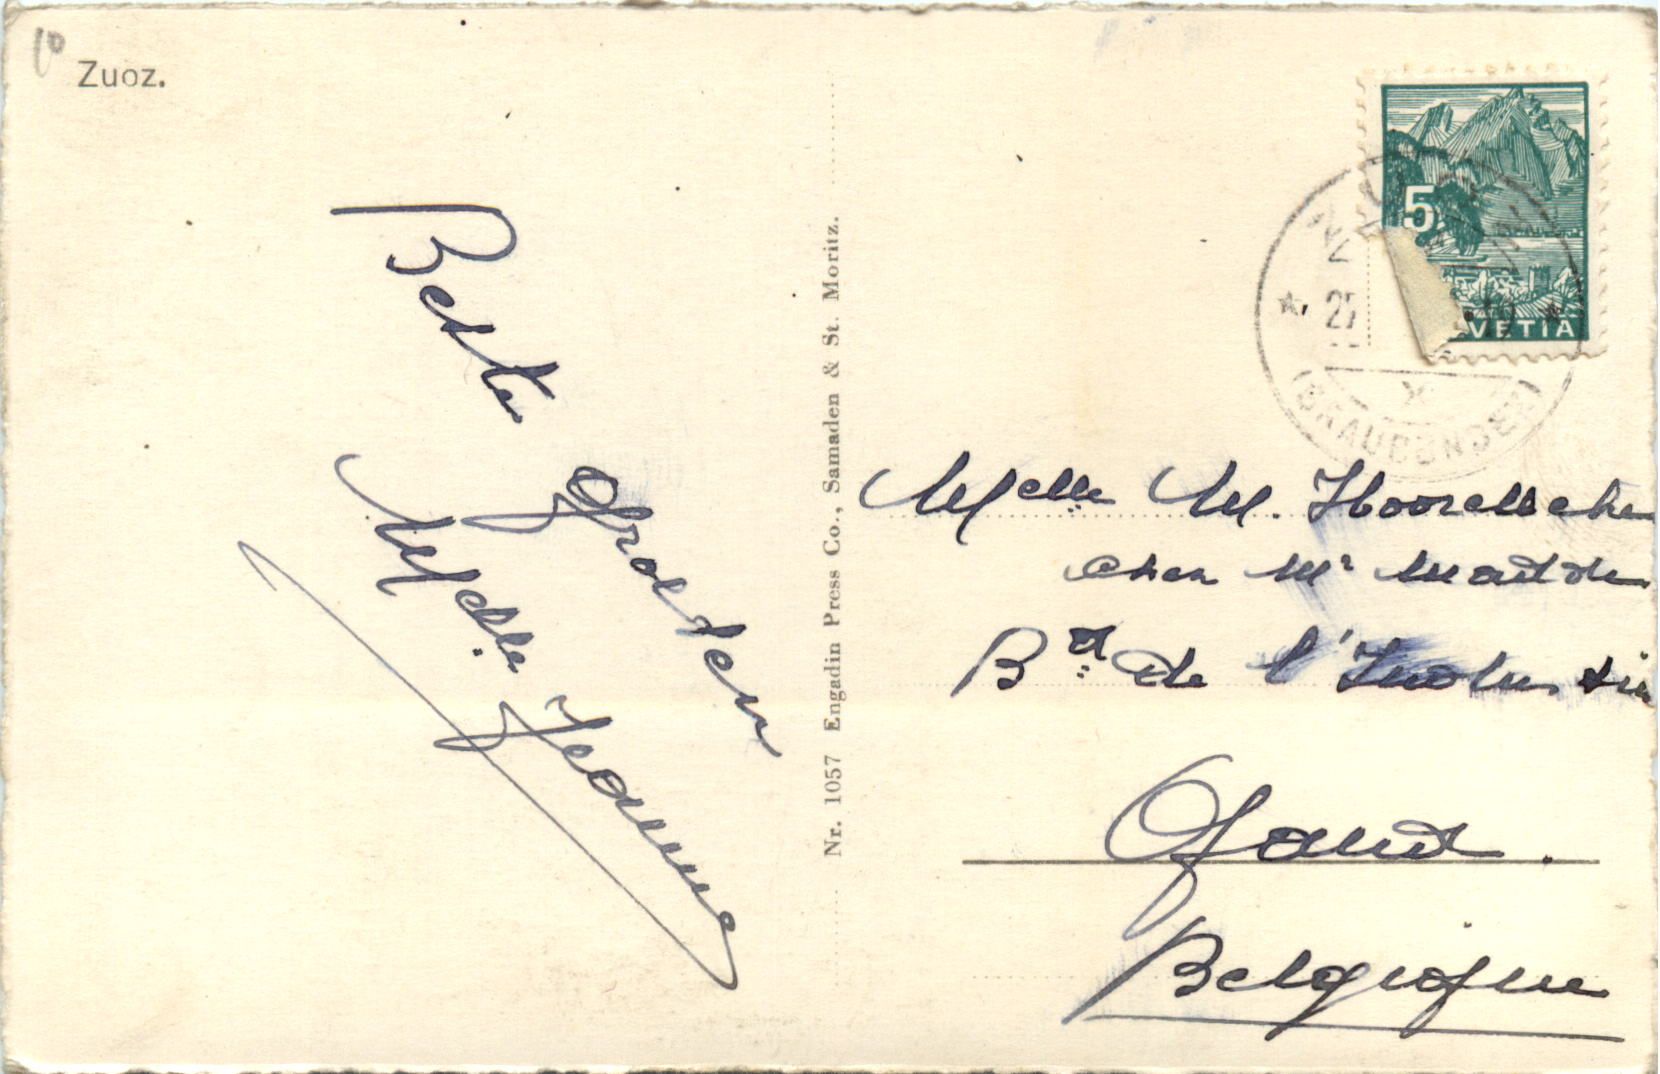 10
Zuoz.
Beste
Groeten
Melle Jeanne
Nr. 1057 Engadin Press Co., Samaden & St. Moritz.
5
HELVETIA
ZUOZ
27
(GRAUBÜNDEN)
Melle M.
chez Mr
Bd de l'Industrie
Gand.
Belgique